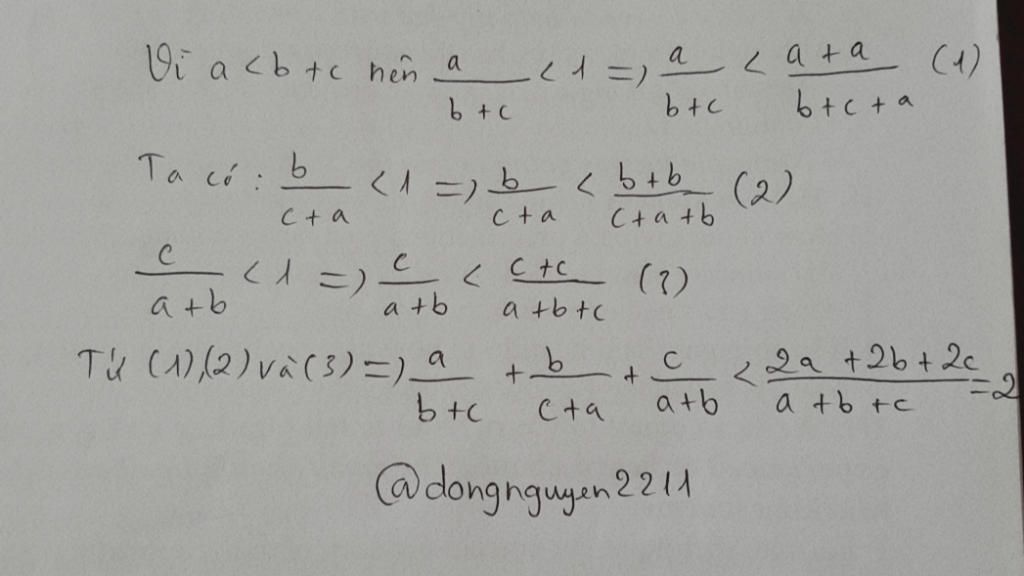 Vì a < b + c nên a/(b + c) < 1 => a/(b + c) < (a + a)/(b + c + a) (1)
Ta có : b/(c + a) < 1 => b/(c + a) < (b + b)/(c + a + b) (2)
c/(a + b) < 1 => c/(a + b) < (c + c)/(a + b + c) (3)
Từ (1),(2) và (3) => a/(b + c) + b/(c + a) + c/(a + b) < (2a + 2b + 2c)/(a + b + c) = 2
@dongnguyen2211